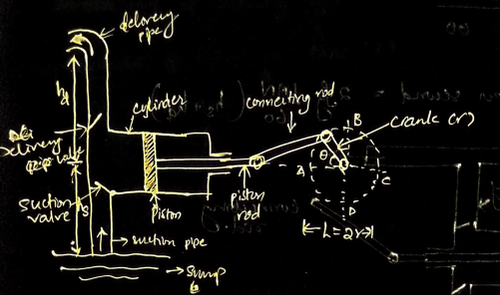 delivery
pipe
hd
cylinder
connecting rod
crank (r)
B
Delivery
valve
θ
A
C
suction
valve
hs
piston
piston
rod
D
L=2r
suction pipe
sump